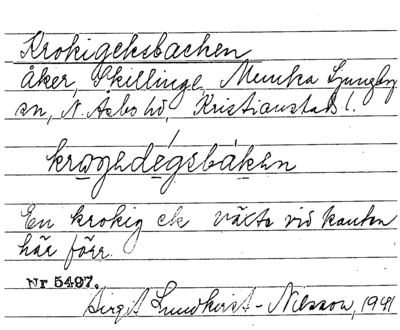 Krokigeksbacken
åker, Skillinge, Munka Ljungby
sn, N. Åsbo hd, Kristianstads l.
En krokig ek växte vid kanten
här förr.
Nr 5497.
Birgit Lundkvist-Nilsson, 1941